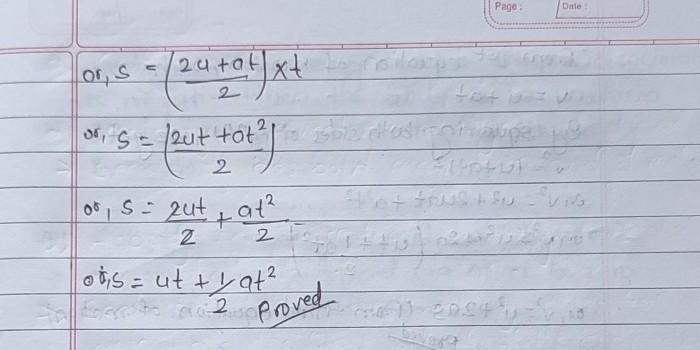 Page : Date :
or, s = (2u+at/2) × t
or, s = (2ut + at²/2)
or, s = 2ut/2 + at²/2
or, s = ut + 1/2 at²
proved